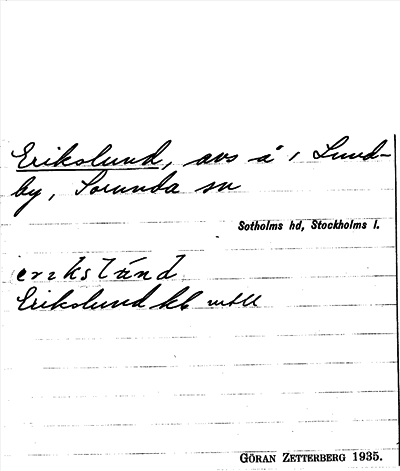 Erikslund, avs å i Lund-
by, Sorunda sn
Sotholms hd, Stockholms l.
erɩkslánd
Erikslund kb
GÖRAN ZETTERBERG 1935.